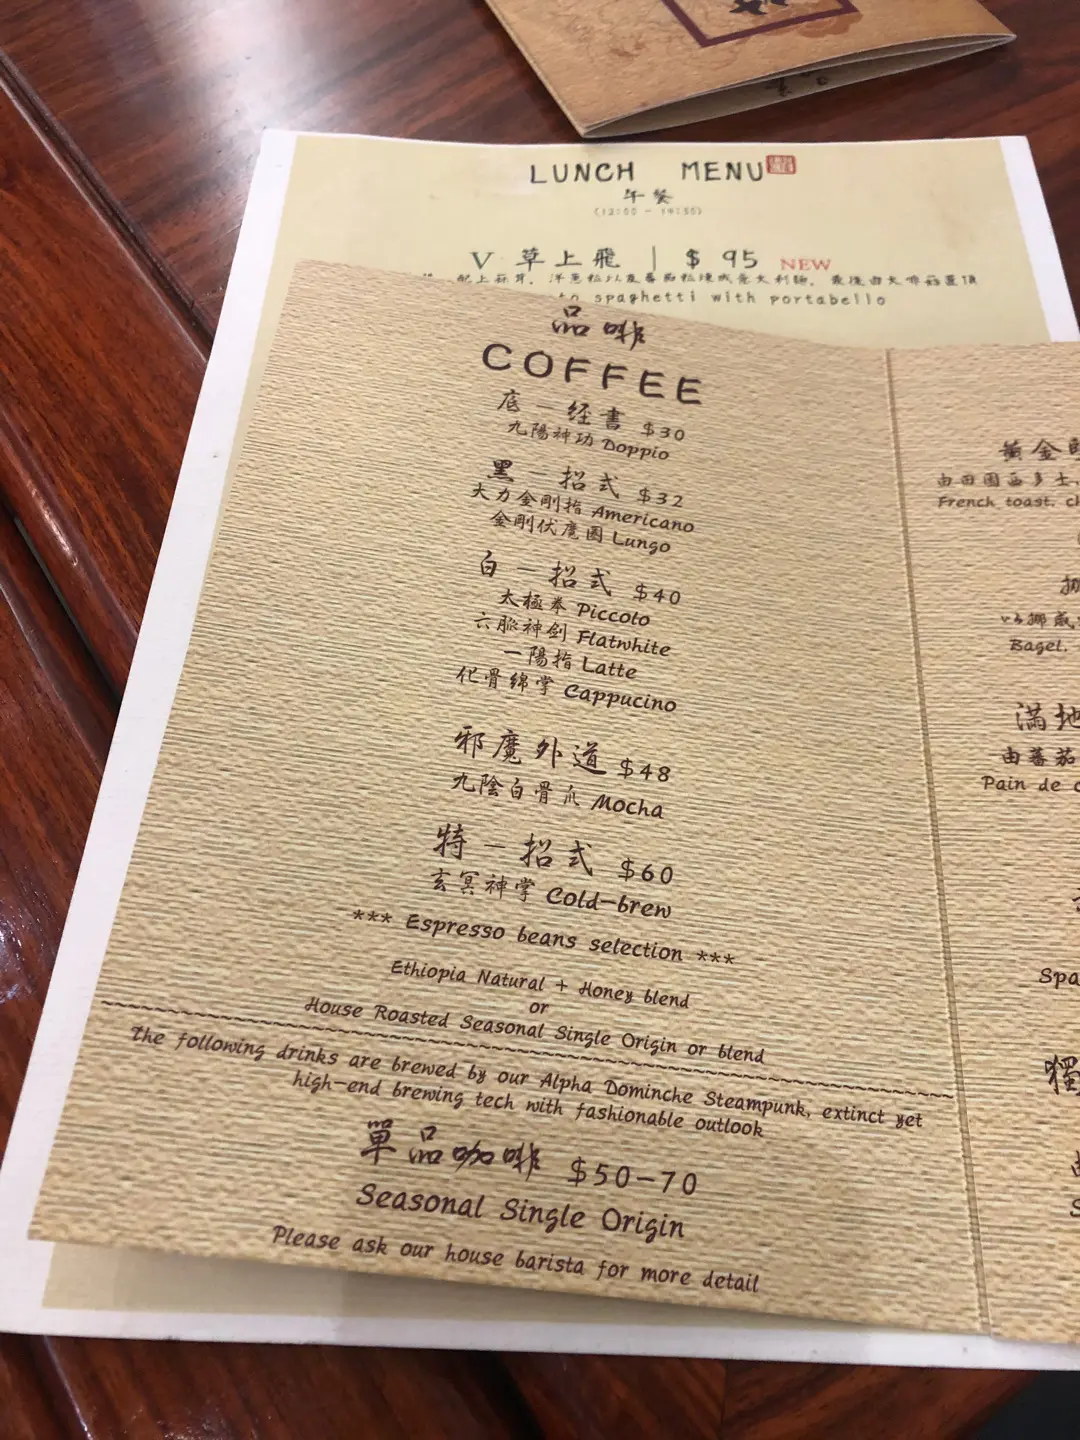 LUNCH MENU
午餐
V 草上飛 | $ 95 NEW
配上茄茸, 洋蔥粒以及番茄粒煉成意大利麵, 最後由大啡菇蓋頂
to spaghetti with portabello
品啡
COFFEE
底一经書 $30
九陽神功 Doppio
黑一招式 $32
大力金剛指 Americano
金剛伏魔圈 Lungo
白一招式 $40
太極拳 Piccoto
六脈神剑 Flatwhite
一陽指 Latte
化骨綿掌 Cappucino
邪魔外道 $48
九陰白骨爪 Mocha
特一招式 $60
玄冥神掌 Cold-brew
*** Espresso beans selection ***
Ethiopia Natural + Honey blend
or
House Roasted Seasonal Single Origin or blend
The following drinks are brewed by our Alpha Dominche Steampunk, extinct yet
high-end brewing tech with fashionable outlook
單品咖啡 $50-70
Seasonal Single Origin
Please ask our house barista for more detail
黃金
由田園西多士,
French toast, c
Bagel,
滿地
由蕃茄
Pain de c
Spa
獨